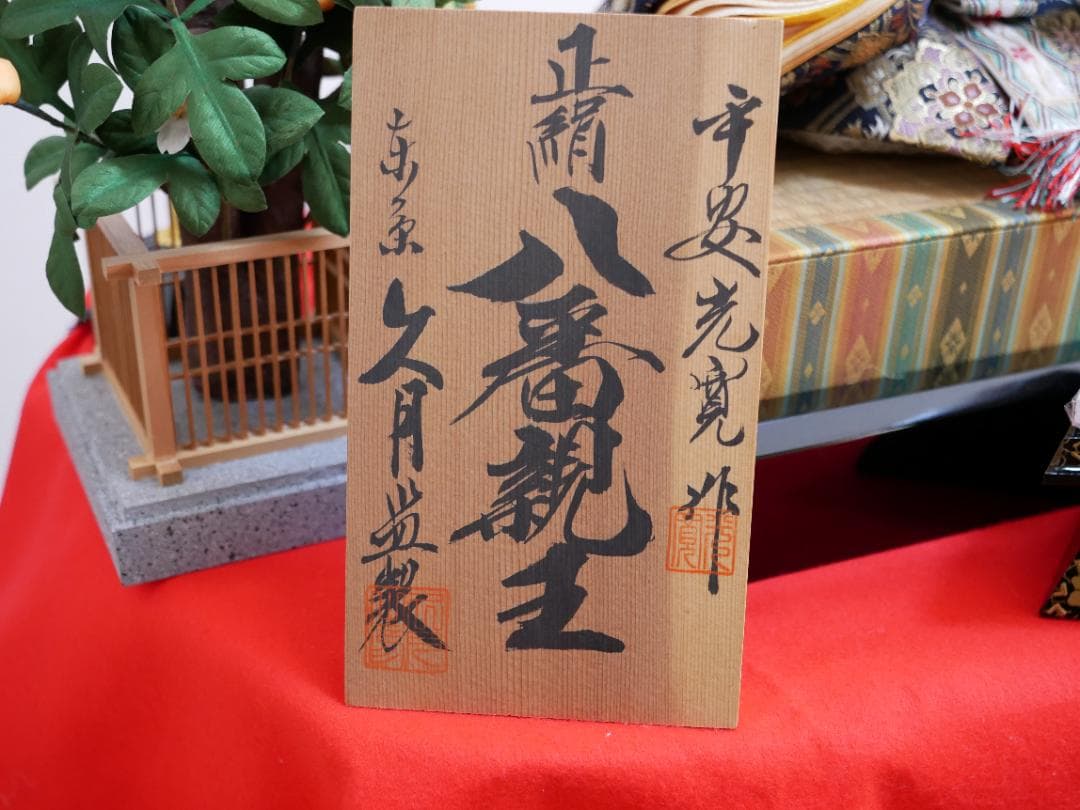 平安光寛作
正絹
八番親王
東京久月監製